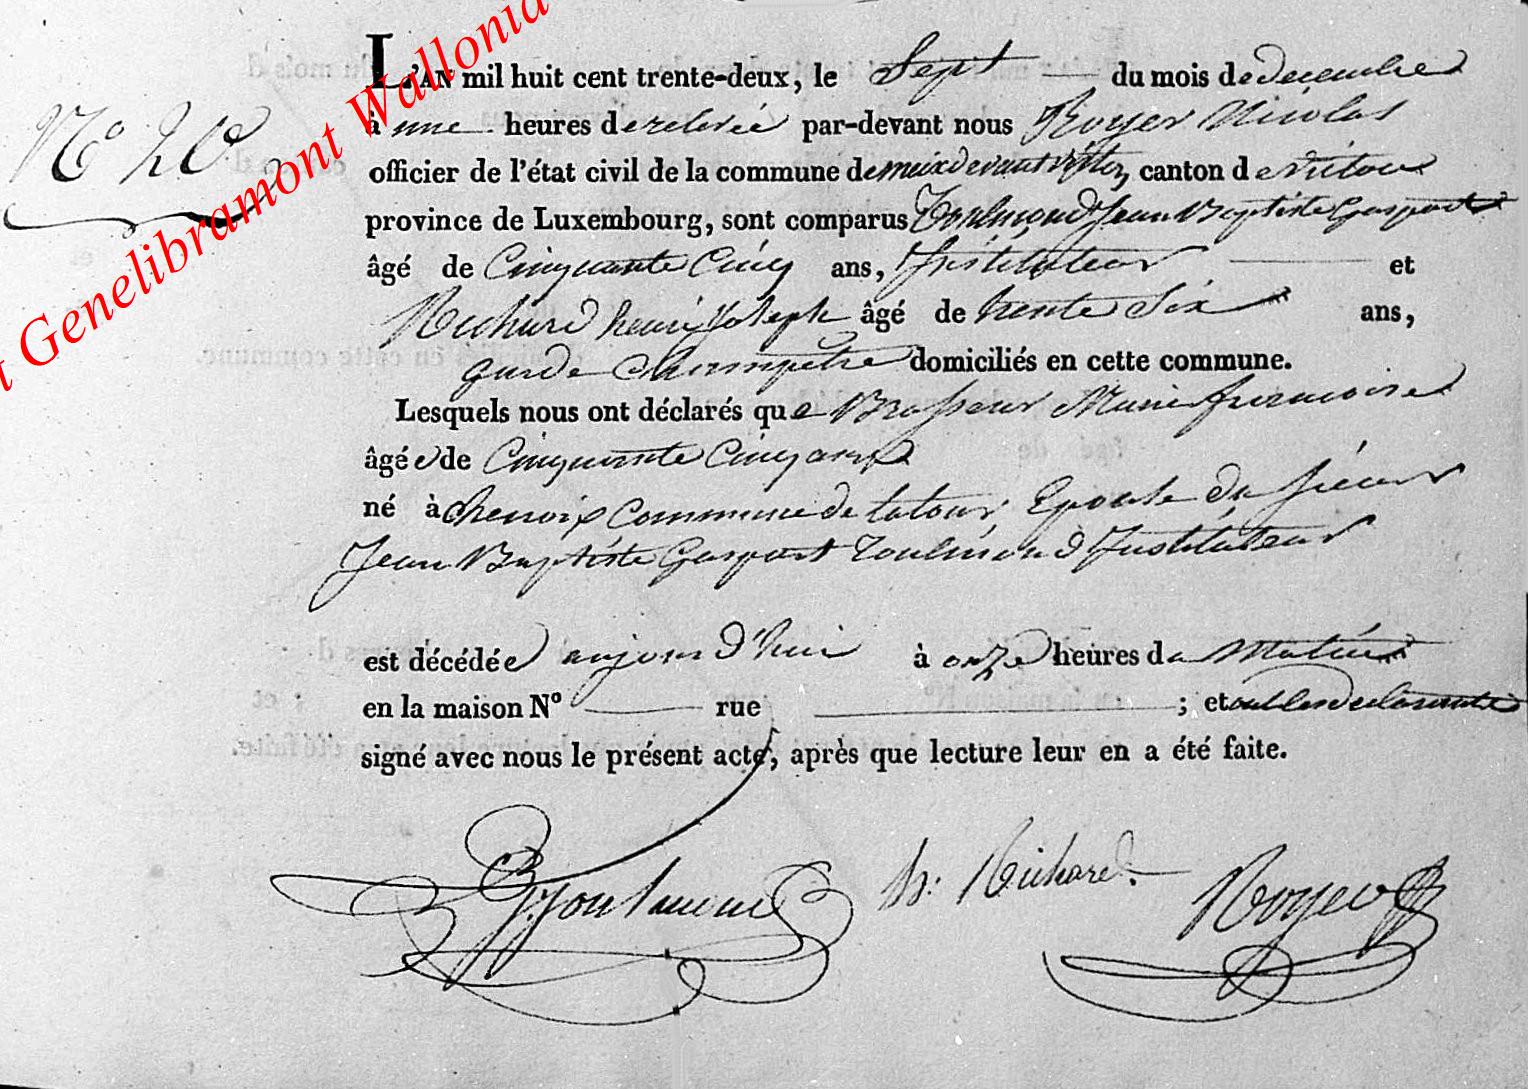 L'AN mil huit cent trente-deux, le Sept du mois de decembre
N° 20
à une heures de relevée par-devant nous Royer Nicolas
officier de l'état civil de la commune de meixdevantvirton, canton de virton
province de Luxembourg, sont comparus Toulmond Jean Baptiste Gaspart
âgé de Cinquante Cinq ans, Instituteur et
Richard henri Joseph âgé de trente Six ans,
garde Champetre domiciliés en cette commune.
Lesquels nous ont déclarés que Brasseur Marie francoise
âgée de Cinquante Cinq ans
né à chenoix Commune de latour Epouse du sieur
Jean Baptiste Gaspart Toulmond Instituteur
est décédée aujourd'hui à onze heures du Matin
en la maison N° rue ; et ont les declarants
signé avec nous le présent acte, après que lecture leur en a été faite.
h: Richard Royer
t Genelibramont Wallonia